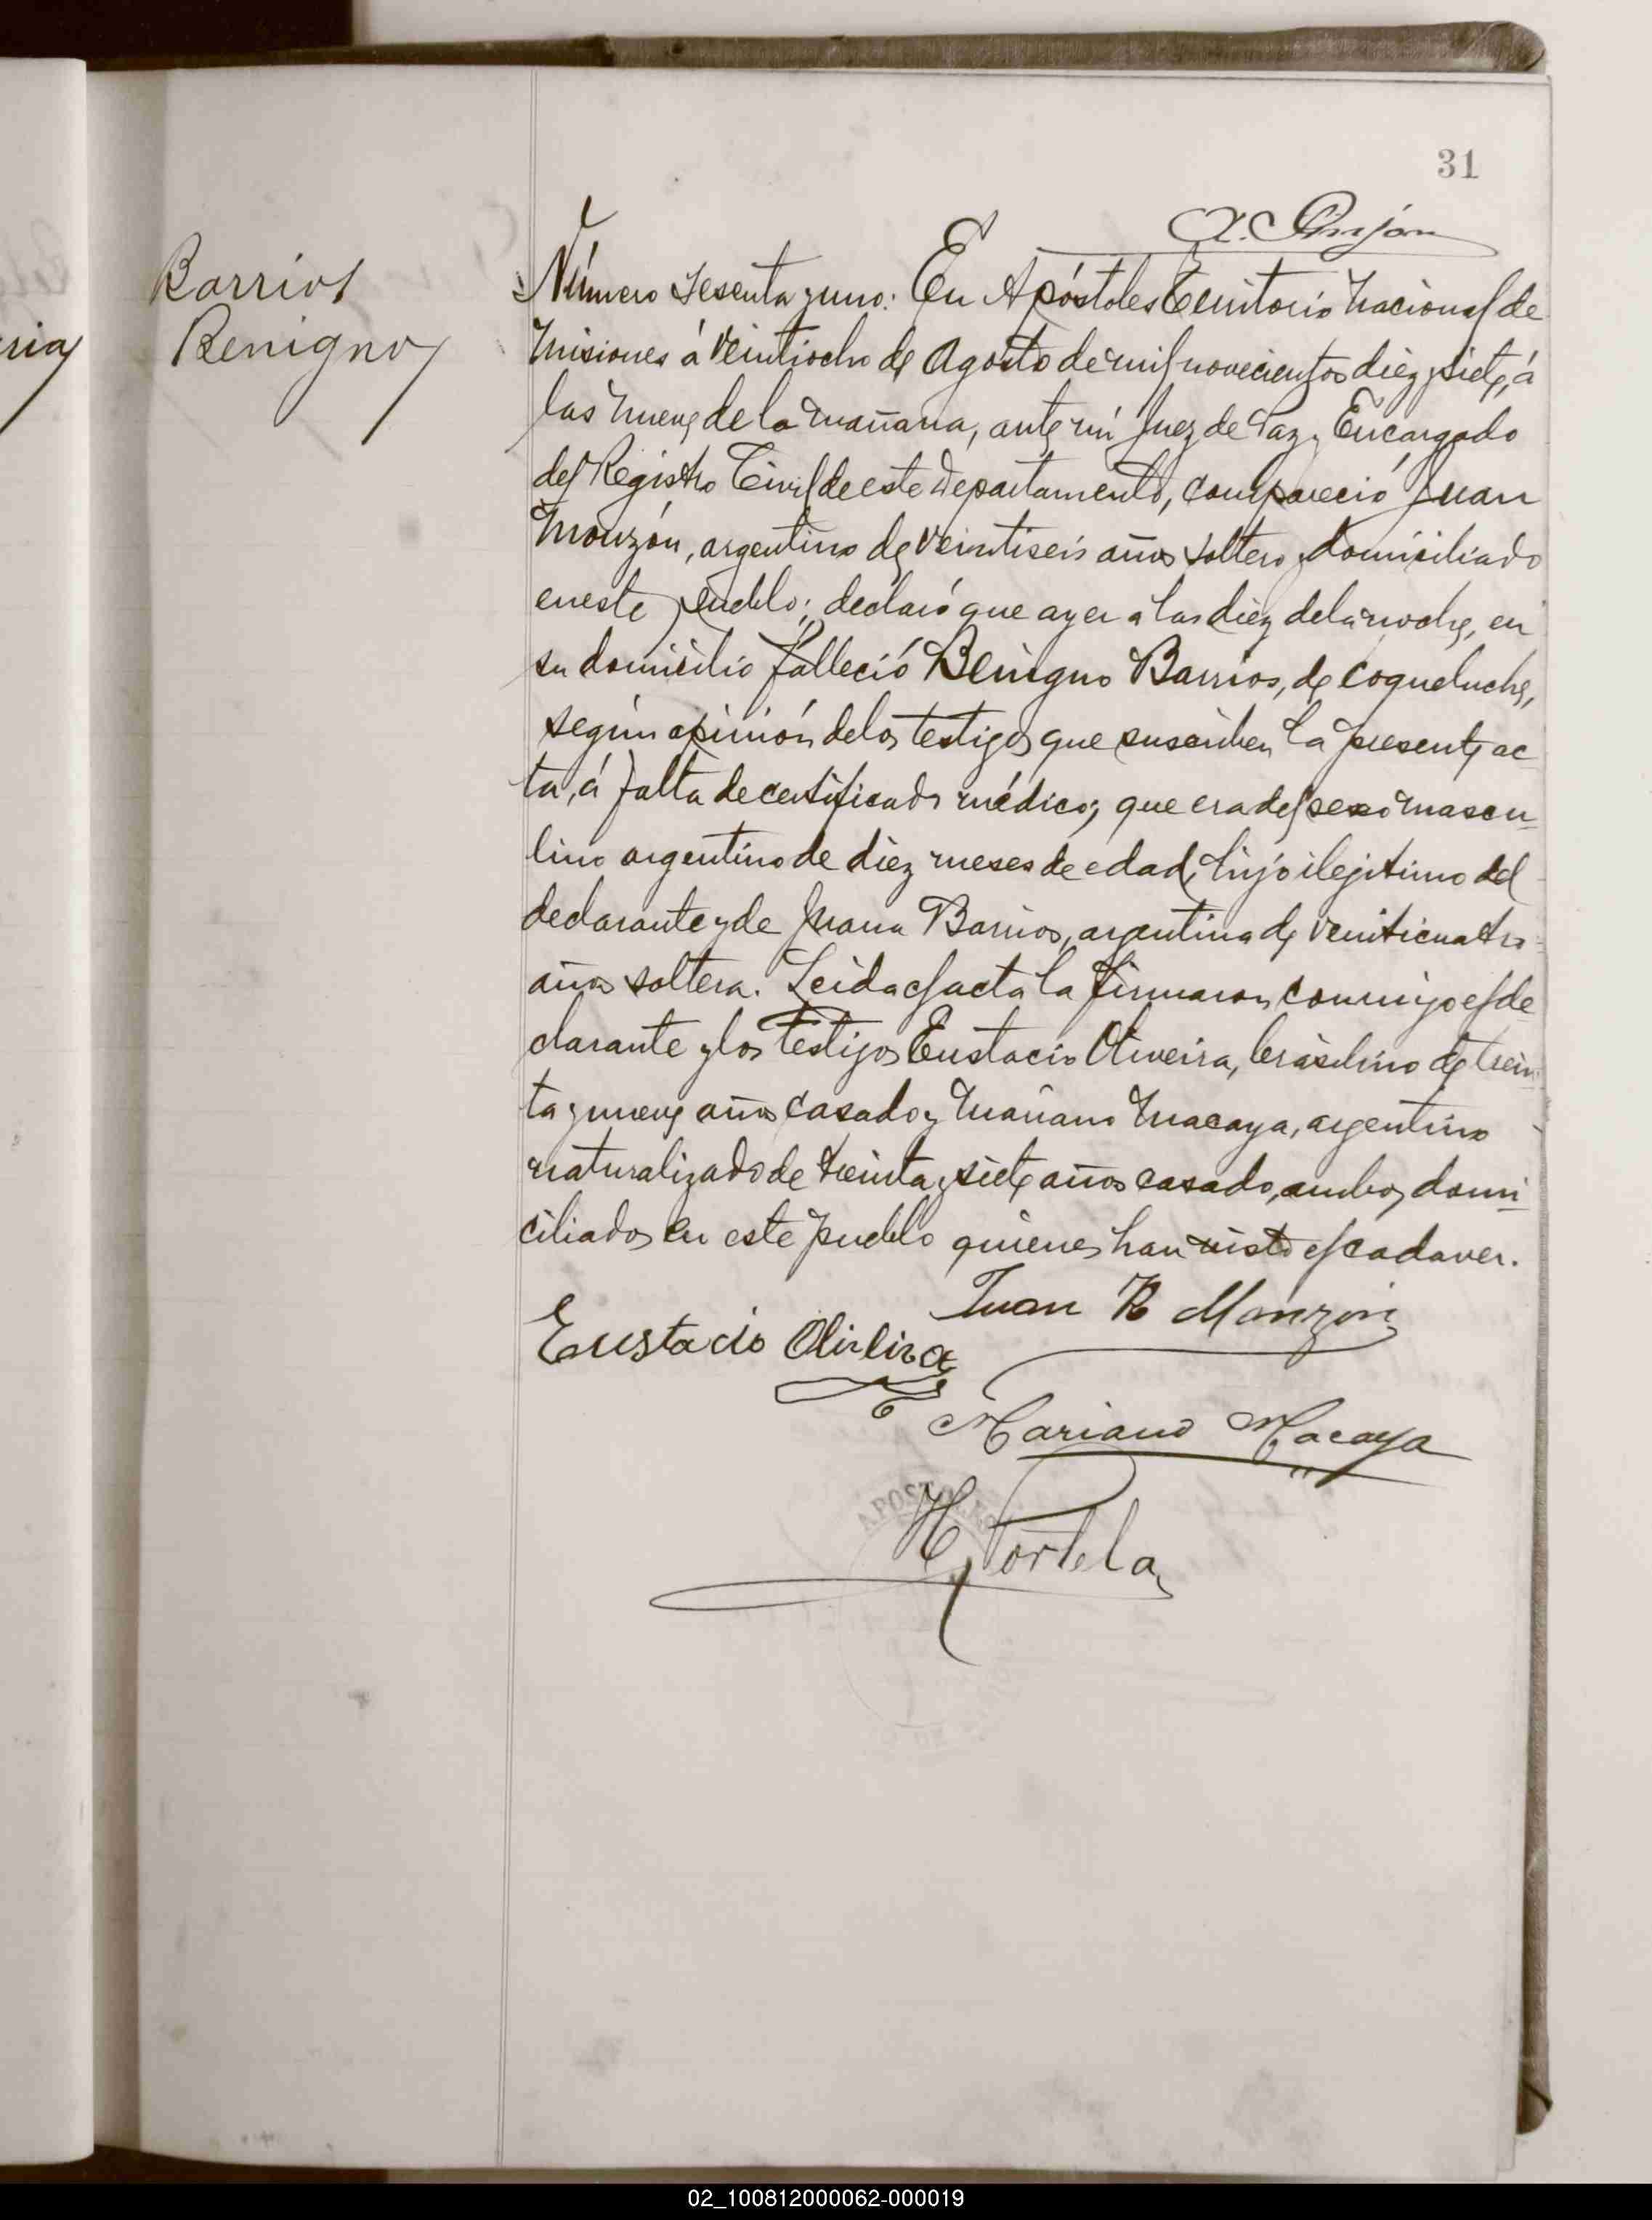 31
Barrios
Benigno
Número sesenta y uno: En Apóstoles Territorio Nacional de
Misiones á veintiocho de Agosto de mil novecientos diez y siete, á
las nueve de la mañana, ante mí Juez de Paz y Encargado
del Registro Civil de este Departamento, compareció Juan
Monzón, argentino de veintiseis años soltero domiciliado
en este pueblo; declaró que ayer a las diez de la noche, en
su domicilio falleció Benigno Barrios, de coqueluche,
según opinión de los testigos que suscriben la presente ac
ta, á falta de certificado médico; que era del sexo mascu-
lino argentino de diez meses de edad, hijo ilegitimo del
declarante y de Juana Barrios, argentina de veinticuatro
años soltera. Leida el acta la firmaron conmigo el de
clarante y los testigos Eustacio Oliveira, brasilino de trein
ta y nueve años casado y Mariano Macaya, argentino
naturalizado de treinta y siete años casado, ambos domi-
ciliados en este pueblo quienes han visto el cadaver.
Juan R Monzón
Eustacio Olivira
Mariano Macaya
APOSTOLES
H Portela
02_100812000062-000019